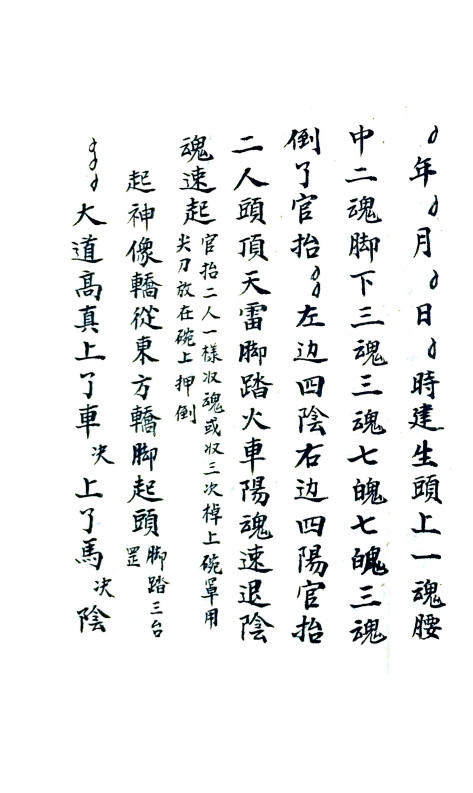 年月日時建生頭上一魂腰
中二魂脚下三魂三魂七魄七魄三魂
倒了官抬左边四陰右边四陽官抬
二人頭頂天雷脚踏火車陽魂速退陰
魂速起官抬二人一様収魂或収三次棹上碗罩用
尖刀放在碗上押倒
起神像轎從東方轎脚起頭脚踏三台
罡
大道高真上了車决上了馬决陰